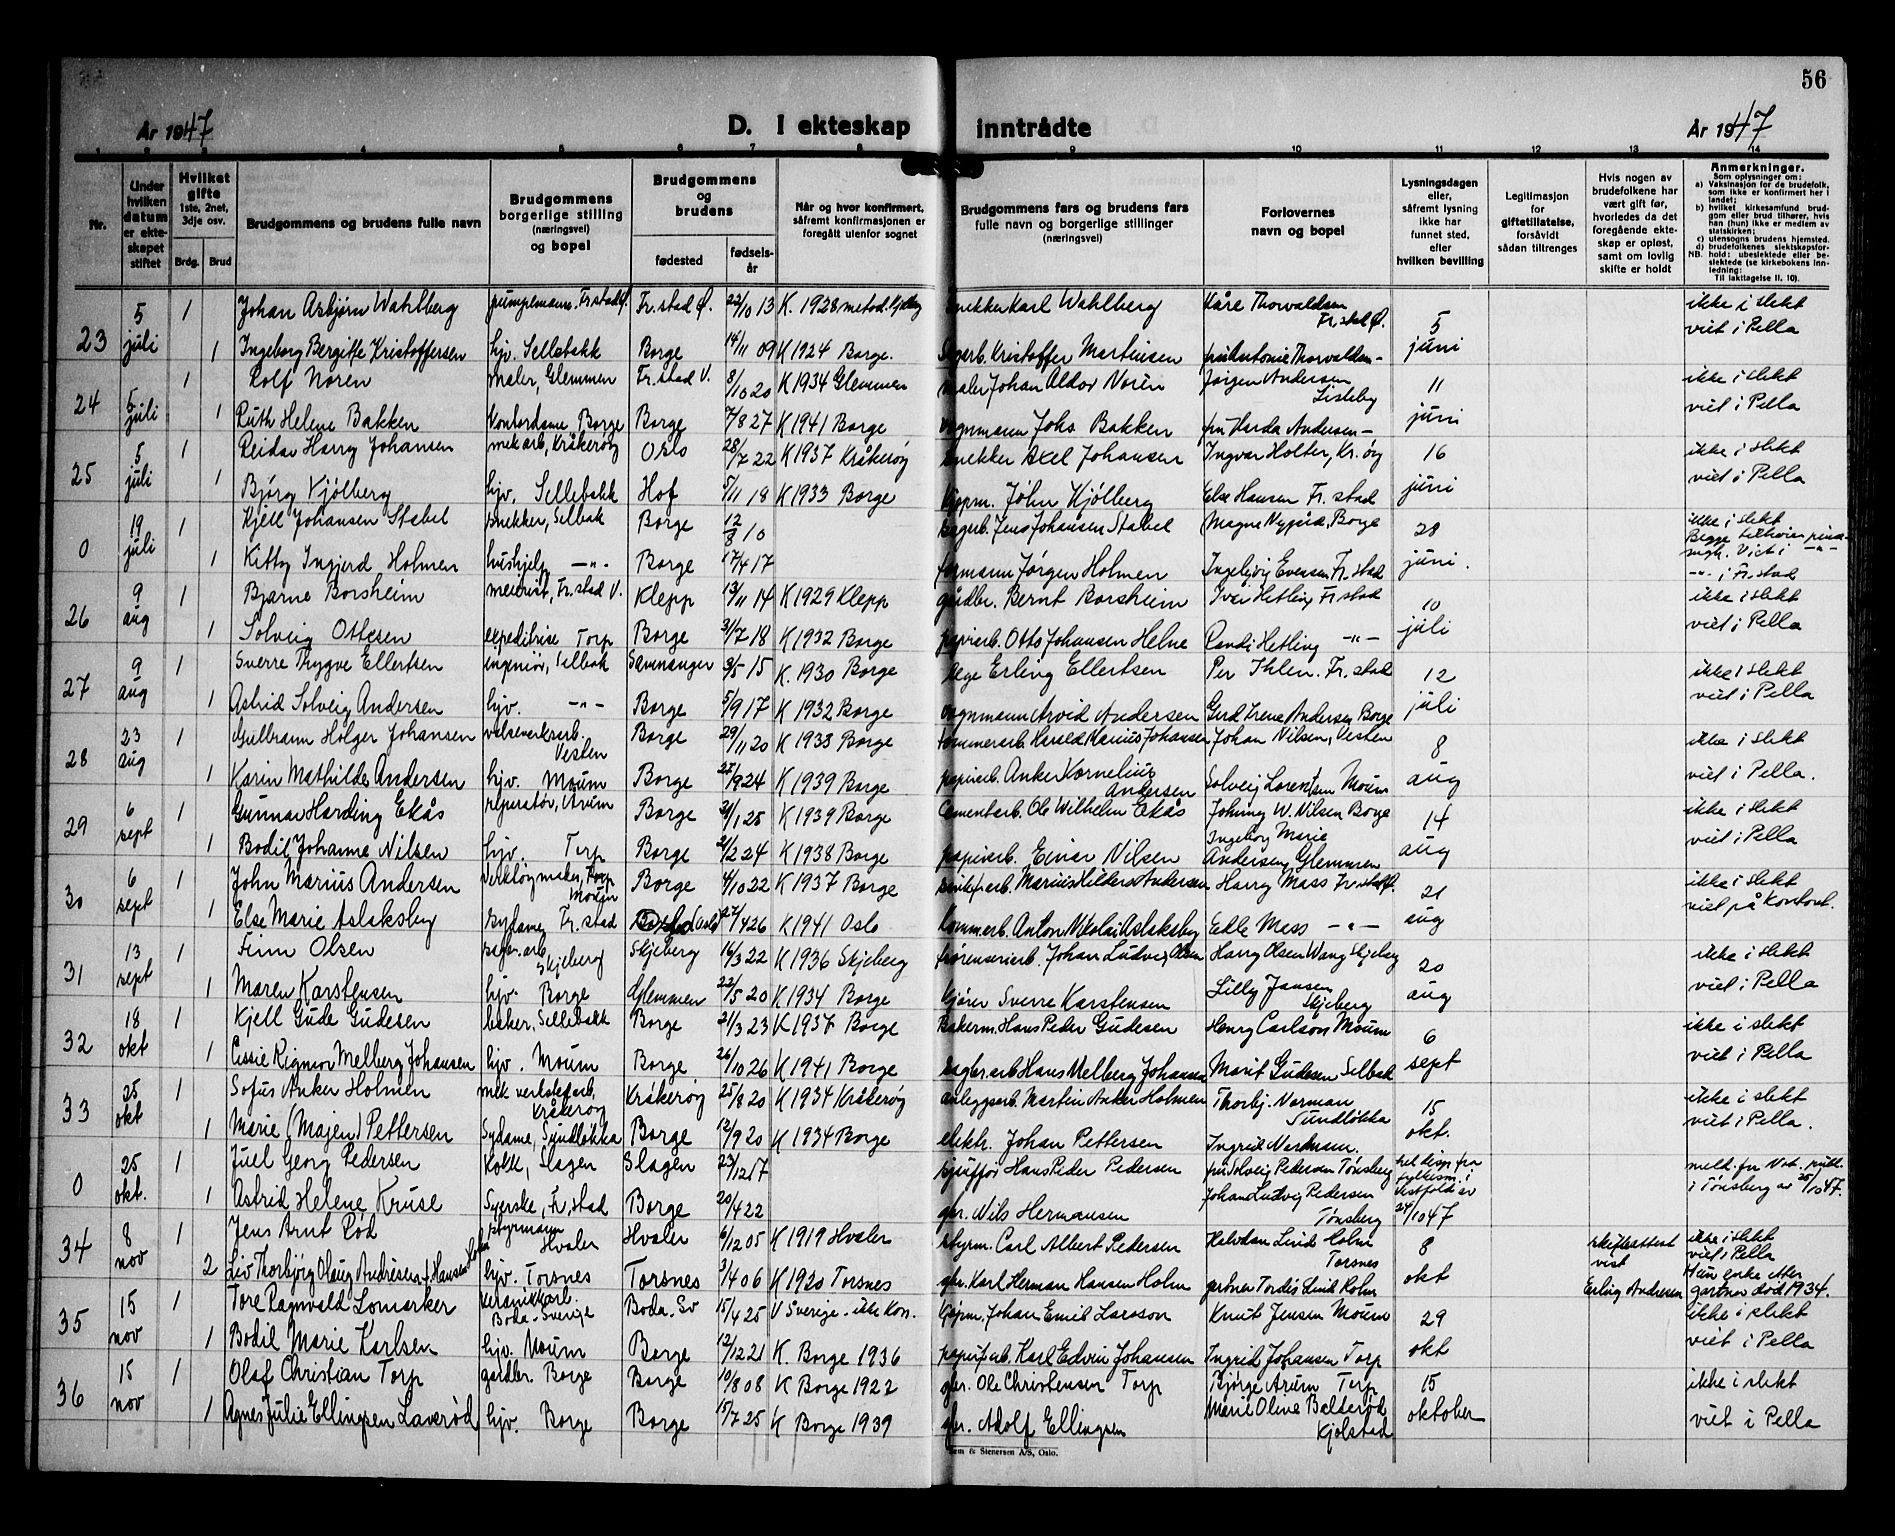 56
År 1947
D. I ekteskap inntrådte
År 1947
1 2 3 4 5 6 7 8 9 10 11 12 13 14
Nr.
Under hvilken datum er ekteskapet stiftet
Hvilket gifte 1ste, 2net, 3dje osv.
Brdg. Brud
Brudgommens og brudens fulle navn
Brudgommens borgerlige stilling (næringsvei) og bopel
Brudgommens og brudens
fødested
fødselsår
Når og hvor konfirmert, såfremt konfirmasjonen er foregått utenfor sognet
Brudgommens fars og brudens fars fulle navn og borgerlige stillinger (næringsvei)
Forlovernes navn og bopel
Lysningsdagen eller, såfremt lysning ikke har funnet sted, efter hvilken bevilling
Legitimasjon for giftetillatelse, forsåvidt sådan tiltrenges
Hvis nogen av brudefolkene har vært gift før, hvorledes da det foregående ekteskap er opløst, samt om lovlig skifte er holdt
Anmerkninger.
Som oplysninger om:
a) Vaksinasjon for de brudefolk, som ikke er konfirmert her i landet;
b) hvilket kirkesamfund brudgom eller brud tilhører, hvis han (hun) ikke er medlem av statskirken;
c) utensogns brudens hjemsted.
d) brudefolkenes slektskapsforhold: ubeslektede eller beslektede (se kirkebokens innledning:
NB. Til iakttagelse II. 10).
23 5 juli 1 Johan Asbjørn Wahlberg pumpemann. Fr.stad Ø. Fr.stad Ø. 22/10 13 K. 1928 metod. snekker Karl Wahlberg Kåre Thorvaldsen Fr.stad Ø. 5 juni ikke i slekt
1 Ingeborg Bergitte Kristoffersen hjv. Sellebakk Borge 14/11 09 K 1924 Borge. Kristoffer Martinsen fru Antonie Thorvaldsen viet i Pella
24 5 juli 1 Rolf Noren maler, Glemmen Fr.stad V. 8/10 20 K 1934 Glemmen maler Johan Aldor Norén Jørgen Andersen Lisleby 11 juni ikke i slekt
1 Ruth Helene Bakken Kontordame Borge Borge 7/8 27 K 1941 Borge vognmann Johs Bakken fru Harda Andersen viet i Pella
25 5 juli 1 Reidar Harry Johansen mek arb, Kråkerøy Oslo 28/7 22 K 1937 Kråkerøy snekker Axel Johansen Ingvar Holter, Kr. øy 16 juni ikke i slekt
1 Bjørg Kjølberg hjv. Sellebakk Hof 5/11 18 K 1933 Borge John Kjølberg Else Hansen Fr. stad viet i Pella
0 19 juli 1 Kjell Johansen Stabel snekker, Selbak Borge 12/8 10 Jens Johansen Stabel Magne Nygård, Borge 28 juni. ikke i slekt Begge tilhører
1 Kitty Ingjerd Holmen hushjelp -"- Borge 17/4 17 formann Jørgen Holmen Ingebjørg Evensen Fr. stad Viet i -"- i Fr. stad
26 9 aug 1 Bjarne Borsheim meierist, Fr. stad V. Klepp 13/11 14 K 1929 Klepp gårdbr. Bernt Borsheim Iver Hetling Fr stad 10 juli ikke i slekt
1 Solveig Ottesen expeditrise Torp Borge 31/7 18 K 1932 Borge papirarb. Otto Johansen Helne Randi Hetling -"- viet i Pella
27 9 aug 1 Sverre Thygve Ellertsen ingeniør, Selbak Samnanger 15 K. 1930 Borge Erling Ellertsen Per Ihlen. Fr. stad 12 juli ikke i slekt
1 Astrid Solveig Andersen hjv. -"- Borge 5/9 17 K 1932 Borge vognmann Arvid Andersen Gerd Irene Andersen Borge viet i Pella
28 23 aug 1 Gulbrann Holger Johansen valseverksarb. Vesten Borge 29/11 20 K 1933 Borge tømmerarb. Harald Marius Johansen Johan Nilsen, Vesten 8 aug ikke i slekt
1 Karin Mathilde Andersen hjv. Moum Borge 27/9 24 K 1939 Borge papirarb. Anker Kornelius Andersen Solveig Lorentsen Moum viet i Pella.
29 6 sept 1 Gunnar Harding Ekås reperatør, Årum Borge 21/1 25 K 1939 Borge Cementarb. Ole Wilhelm Ekås Johnny W. Nilsen Borge 14 aug ikke i slekt
1 Bodil Johanne Nilsen hjv. Torp Borge 21/2 24 K 1938 Borge papirarb. Einar Nilsen Ingeborg Marie Andersen, Glemmen viet i Pella
30 6 sept 1 John Marius Andersen verktøymaker, Torp Moum Borge 4/10 22 K 1937 Borge Marius Hilders Andersen Harry Mass Fr. stad 21 aug ikke i slekt
1 Else Marie Aslaksby Sydame, Fr. stad (Oslo) 27/4 26 K 1941 Oslo Anton Nikolai Aslaksby Edle Mass -"- viet på Kontoret.
31 13 sept 1 Finn Olsen Skjeberg Skjeberg 16/3 22 K 1936 Skjeberg Johan Ludvig Olsen Harry Olsen Wang Skjeberg 20 aug ikke i slekt
1 Maren Karstensen hjv. Borge Glemmen 22/5 20 K 1934 Borge kjører Sverre Karstensen Lilly Jansen Skjeberg viet i Pella
32 18 okt 1 Kjell Gude Gudesen baker, Sellebakk Borge 21/3 23 K 1937 Borge Bakerm. Hans Peder Gudesen Henry Carlson Moum 6 sept ikke i slekt
1 Cissie Rigmor Melberg Johansen hjv. Moum Borge 26/10 26 K 1941 Borge Hans Melberg Johansen Marit Gudesen Selbak viet i Pella
33 25 okt 1 Sofus Anker Holmen mek verkstedarb, Kråkerøy Kråkerøy 25/8 20 K 1934 Kråkerøy anleggsarb. Martin Anker Holmen Thorbj. Norman Sundløkka 15 okt. ikke i slekt
1 Marie (Majen) Pettersen Sydame, Sundløkka Borge 12/9 20 K 1934 Borge elektr. Johan Pettersen Ingrid Nordmann. viet i Pella.
0 25 okt. 1 Juel Georg Pedersen Kokk, Slagen Slagen 23/12 17 sjuffør Hans Peder Pedersen fru Solveig Pedersen Tønsberg disp fra fylkesm. i Vestfold av 24/10 47 meld. fra Not. publ. i Tønsberg av 25/10 47.
1 Astrid Helene Kruse Syerske, Fr. stad Borge 20/4 22 gbr. Nils Hermansen Johan Ludvig Pedersen Tønsberg
34 8 nov 1 Jens Arnt Rød styrmann Hvaler Hvaler 6/12 05 K 1919 Hvaler styrm. Carl Albert Pedersen Halvdan Lind Holm Torsnes 8 okt skifteattest vist ikke i slekt viet i Pella
2 Liv Thorbjørg Olaug Andresen f. Hansen Holm hjv. Torsnes Torsnes 3/4 06 K 1920 Torsnes gbr. Karl Herman Hansen Holm gartner Tordis Lind Holm Erling Andresen Hun enke etter gartner død 1934.
35 15 nov 1 Tore Ragnvald Lomarker Boda. Sverige Boda. Sv 15/4 25 V Sverige - ikke kon. Johan Emil Larsson Knut Jensen Moum 29 okt ikke i slekt
1 Bodil Marie Karlsen hjv. Moum Borge 12/12 21 K. Borge 1936 papirarb. Karl Edvin Johansen Ingrid Johansen Torp viet i Pella
36 15 nov 1 Olaf Christian Torp gardbr. Borge Borge 10/8 08 K Borge 1922 gbr. Ole Christensen Torp Bjørge Årum Torp 15 oktober ikke i slekt
1 Agnes Julie Ellingsen Laverød hjv. Borge Borge 15/7 25 K Borge 1939 gbr. Adolf Ellingsen Marie Olive Balterød Kjølstad viet i Pella
Sem & Stenersen A/S, Oslo.